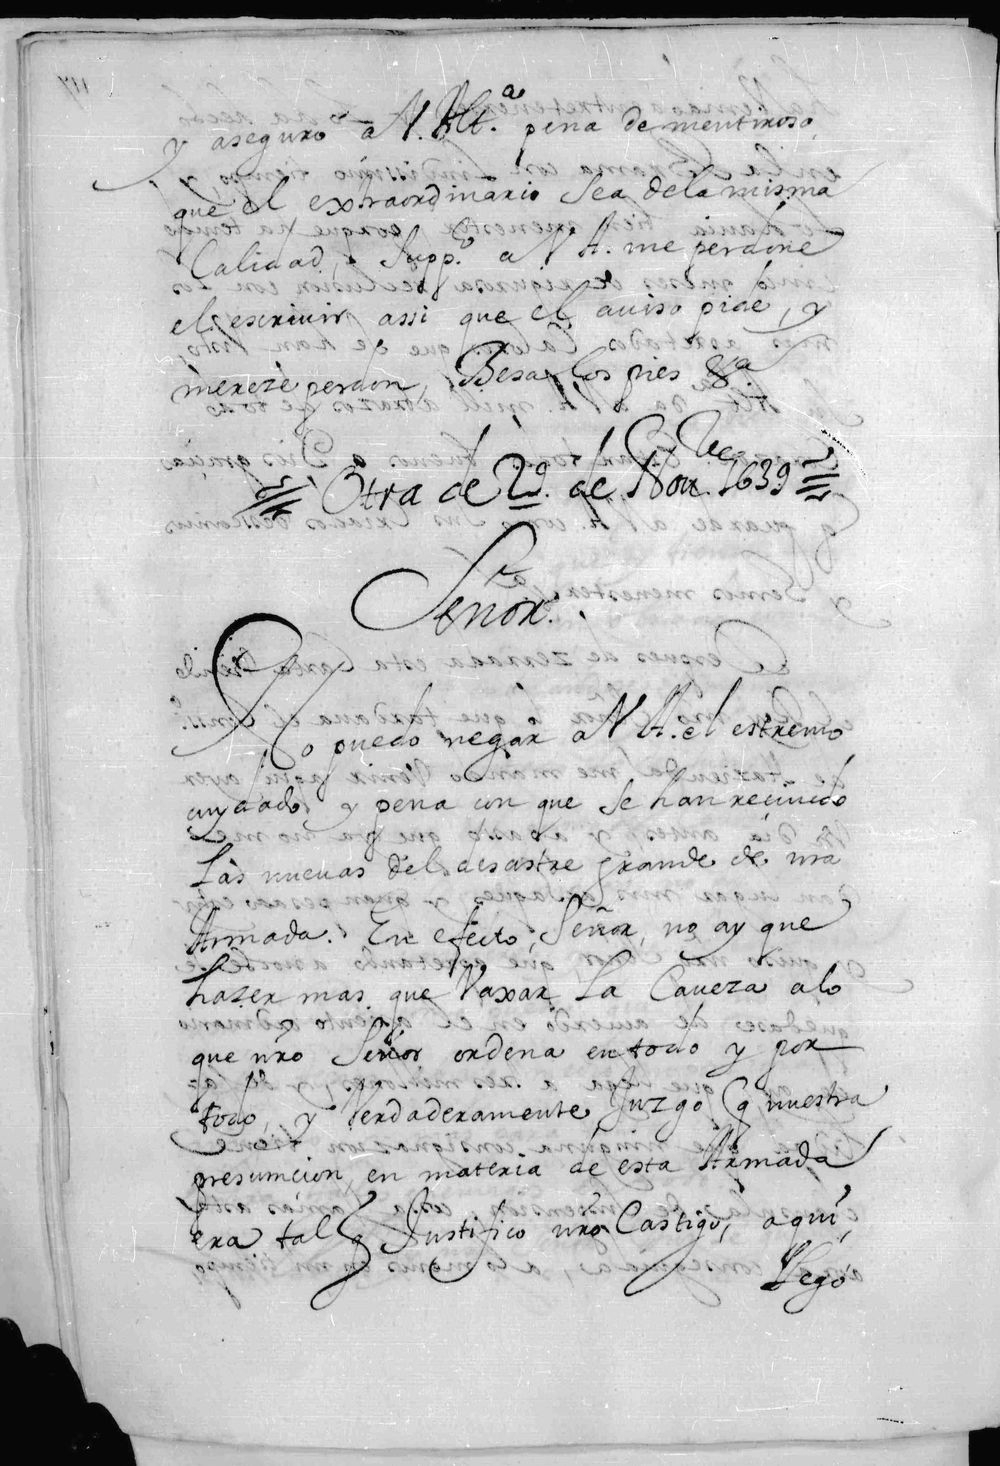 y aseguro a V. Alt.ª pena de mentiroso,
que el extraordinario sea dela misma
Calidad, Supp.co a V A. me perdone
el escriuir assi que el auiso pide, y
mereze perdon, Besa los pies &ª
Otra de 29. de Nou.re 1639
Señor.
No puedo negar a V A. el estremo
cuydado, y pena con que se han reciuido
Las nueuas del desastre grande de nra
Armada. En efecto, Señor, no ay que
hazer mas que Vaxar La Caueza alo
que nro Señor ordena en todo y por
todo, y Verdaderamente Juzgo q nuestra
presumcion en materia de esta Armada
era tal q Justifico nro Castigo, aqui,
Llegó